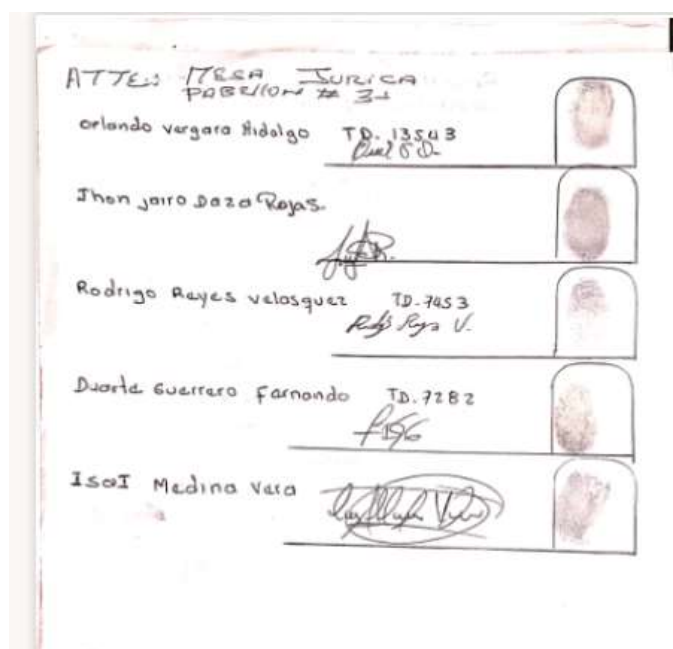 ATTE: MESA JURICA
PABELLON # 31
Orlando vergara Hidalgo TD. 13543
Jhon jairo Daza Rojas.
Rodrigo Reyes velasquez TD-7453
Duarte Guerrero Fernando TD.7282
IsaI Medina Vera